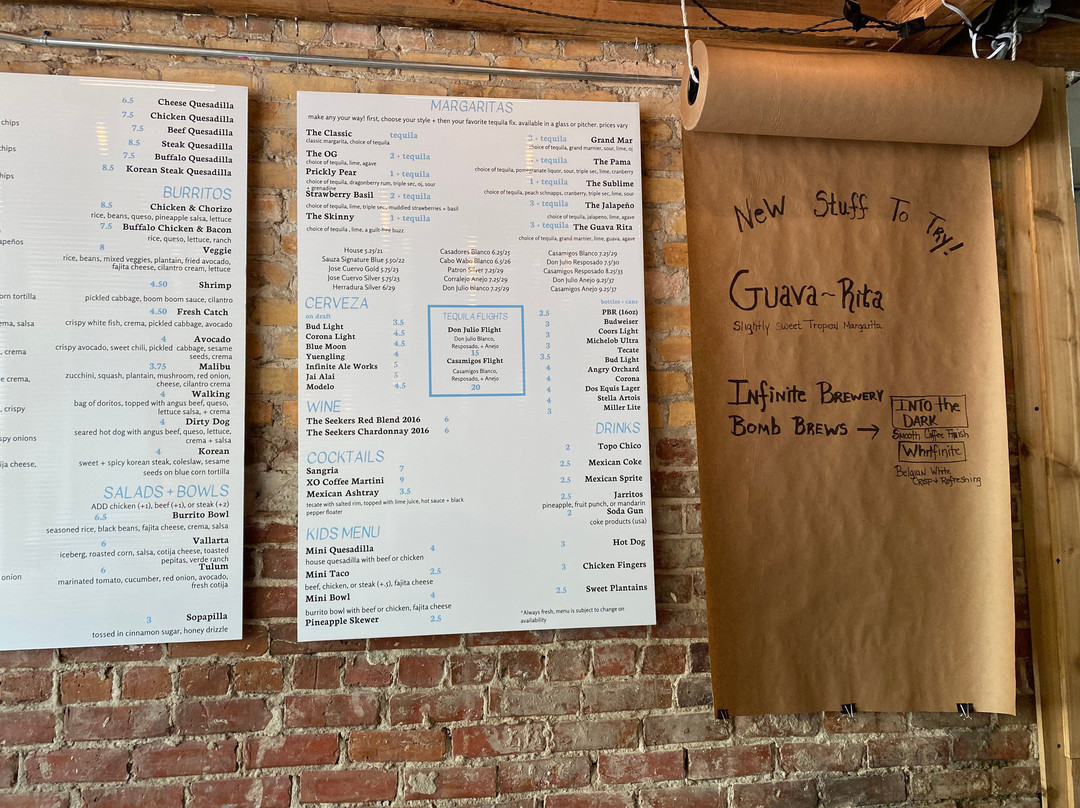 chips
chips
tortilla
salsa
crema
crema,
crispy
onions
cheese,
onion
6.5 Cheese Quesadilla
7.5 Chicken Quesadilla
7.5 Beef Quesadilla
8.5 Steak Quesadilla
7.5 Buffalo Quesadilla
8.5 Korean Steak Quesadilla
BURRITOS
8.5 Chicken & Chorizo
rice, beans, queso, pineapple salsa, lettuce
7.5 Buffalo Chicken & Bacon
rice, queso, lettuce, ranch
8 Veggie
rice, beans, mixed veggies, plantain, fried avocado,
fajita cheese, cilantro cream, lettuce
4.50 Shrimp
pickled cabbage, boom boom sauce, cilantro
4.50 Fresh Catch
crispy white fish, crema, pickled cabbage, avocado
4 Avocado
crispy avocado, sweet chili, pickled cabbage, sesame
seeds, crema
3.75 Malibu
zucchini, squash, plantain, mushroom, red onion,
cheese, cilantro crema
4 Walking
bag of doritos, topped with angus beef, queso,
lettuce salsa, + crema
4 Dirty Dog
seared hot dog with angus beef, queso, lettuce,
crema + salsa
4 Korean
sweet + spicy korean steak, coleslaw, sesame
seeds on blue corn tortilla
SALADS + BOWLS
ADD chicken (+1), beef (+1), or steak (+2)
6.5 Burrito Bowl
seasoned rice, black beans, fajita cheese, crema, salsa
6 Vallarta
iceberg, roasted corn, salsa, cotija cheese, toasted
pepitas, verde ranch
6 Tulum
marinated tomato, cucumber, red onion, avocado,
fresh cotija
3 Sopapilla
tossed in cinnamon sugar, honey drizzle
MARGARITAS
make any your way! first, choose your style + then your favorite tequila fix. available in a glass or pitcher. prices vary
The Classic tequila
classic margarita, choice of tequila
The OG 2 + tequila
choice of tequila, lime, agave
Prickly Pear 1 + tequila
choice of tequila, dragonberry rum, triple sec, oj, sour
+ grenadine
Strawberry Basil 2 + tequila
choice of tequila, lime, triple sec, muddled strawberries + basil
The Skinny 1 + tequila
choice of tequila , lime, a guilt-free buzz
3 + tequila Grand Mar
choice of tequila, grand marnier, sour, lime, oj
+ tequila The Pama
choice of tequila, pomegranate liquor, sour, triple sec, lime, cranberry
1 + tequila The Sublime
choice of tequila, peach schnapps, cranberry, triple sec, lime, sour
3 + tequila The Jalapeño
choice of tequila, jalapeno, lime, agave
3 + tequila The Guava Rita
choice of tequila, grand marnier, lime, guava, agave
House 5.25/21
Sauza Signature Blue 5.50/22
Jose Cuervo Gold 5.75/23
Jose Cuervo Silver 5.75/23
Herradura Silver 6/29
Casadores Blanco 6.25/25
Cabo Wabo Blanco 6.5/26
Patron Silver 7.25/29
Corralejo Anejo 7.25/29
Don Julio Blanco 7.25/29
Casamigos Blanco 7.25/29
Don Julio Resposado 7.5/30
Casamigos Resposado 8.25/33
Don Julio Anejo 9.25/37
Casamigos Anejo 9.25/37
CERVEZA
on draft
Bud Light 3.5
Corona Light 4.5
Blue Moon 4.5
Yuengling 4
Infinite Ale Works 5
Jai Alai 5
Modelo 4.5
TEQUILA FLIGHTS
Don Julio Flight
Don Julio Blanco,
Resposado, + Anejo
15
Casamigos Flight
Casamigos Blanco,
Resposado, + Anejo
20
bottles + cans
2.5 PBR (16oz)
3 Budweiser
3 Coors Light
3 Michelob Ultra
3 Tecate
3.5 Bud Light
4 Angry Orchard
4 Corona
4 Dos Equis Lager
4 Stella Artois
3 Miller Lite
WINE
The Seekers Red Blend 2016 6
The Seekers Chardonnay 2016 6
COCKTAILS
Sangria 7
XO Coffee Martini 9
Mexican Ashtray 3.5
tecate with salted rim, topped with lime juice, hot sauce + black
pepper floater
DRINKS
2 Topo Chico
2.5 Mexican Coke
2.5 Mexican Sprite
2.5 Jarritos
pineapple, fruit punch, or mandarin
2 Soda Gun
coke products (usa)
KIDS MENU
Mini Quesadilla 4
house quesadilla with beef or chicken
Mini Taco 2.5
beef, chicken, or steak (+.5), fajita cheese
Mini Bowl 4
burrito bowl with beef or chicken, fajita cheese
Pineapple Skewer 2.5
3 Hot Dog
3 Chicken Fingers
2.5 Sweet Plantains
*Always fresh, menu is subject to change on
availability
New Stuff To Try!
Guava~Rita
Slightly Sweet Tropical Margarita
Infinite Brewery
Bomb Brews →
INTO the
DARK
Smooth Coffee Finish
Whitfinite
Belgian White
Crisp + Refreshing